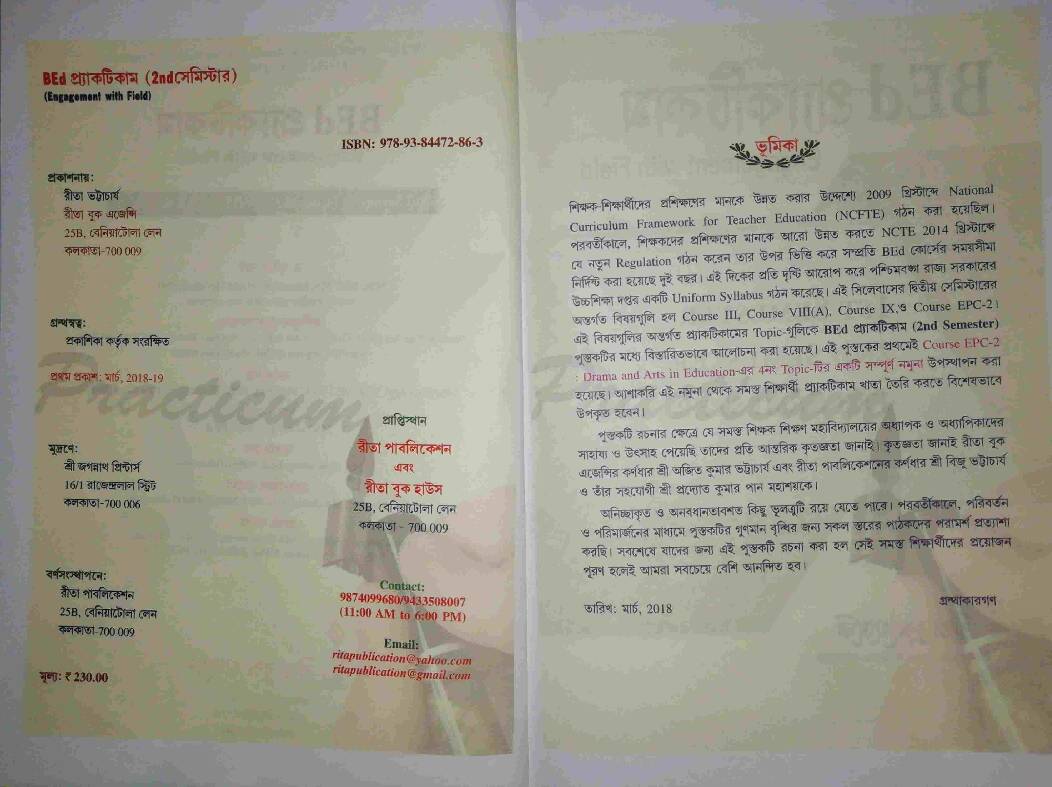 BEd প্র্যাকটিকাম (2nd সেমিস্টার)
(Engagement with Field)
ISBN: 978-93-84472-86-3
প্রকাশনায়:
রীতা ভট্টাচার্য
রীতা বুক এজেন্সি
25B, বেনিয়াটোলা লেন
কলকাতা-700 009
গ্রন্থস্বত্ব:
প্রকাশিকা কর্তৃক সংরক্ষিত
প্রথম প্রকাশ: মার্চ, 2018-19
Practicum
প্রাপ্তিস্থান
রীতা পাবলিকেশন
এবং
রীতা বুক হাউস
25B, বেনিয়াটোলা লেন
কলকাতা - 700 009
মুদ্রণে:
শ্রী জগন্নাথ প্রিন্টার্স
16/1 রাজেন্দ্রলাল স্ট্রিট
কলকাতা-700 006
বর্ণসংস্থাপনে:
রীতা পাবলিকেশন
25B, বেনিয়াটোলা লেন
কলকাতা-700 009
Contact:
9874099680/9433508007
(11:00 AM to 6:00 PM)
Email:
ritapublication@yahoo.com
ritapublication@gmail.com
মূল্য: ₹ 230.00
ভূমিকা
শিক্ষক-শিক্ষার্থীদের প্রশিক্ষণের মানকে উন্নত করার উদ্দেশ্যে 2009 খ্রিস্টাব্দে National
Curriculum Framework for Teacher Education (NCFTE) গঠন করা হয়েছিল।
পরবর্তীকালে, শিক্ষকদের প্রশিক্ষণের মানকে আরো উন্নত করতে NCTE 2014 খ্রিস্টাব্দে
যে নতুন Regulation গঠন করেন তার উপর ভিত্তি করে সম্প্রতি BEd কোর্সের সময়সীমা
নির্দিষ্ট করা হয়েছে দুই বছর। এই দিকের প্রতি দৃষ্টি আরোপ করে পশ্চিমবঙ্গ রাজ্য সরকারের
উচ্চশিক্ষা দপ্তর একটি Uniform Syllabus গঠন করেছে। এই সিলেবাসের দ্বিতীয় সেমিস্টারের
অন্তর্গত বিষয়গুলি হল Course III, Course VIII(A), Course IX,ও Course EPC-2।
এই বিষয়গুলির অন্তর্গত প্র্যাকটিকামের Topic-গুলিকে BEd প্র্যাকটিকাম (2nd Semester)
পুস্তকটির মধ্যে বিস্তারিতভাবে আলোচনা করা হয়েছে। এই পুস্তকের প্রথমেই Course EPC-2
: Drama and Arts in Education-এর 4নং Topic-টির একটি সম্পূর্ণ নমুনা উপস্থাপন করা
হয়েছে। আশাকরি এই নমুনা থেকে সমস্ত শিক্ষার্থী প্র্যাকটিকাম খাতা তৈরি করতে বিশেষভাবে
উপকৃত হবেন।
পুস্তকটি রচনার ক্ষেত্রে যে সমস্ত শিক্ষক শিক্ষণ মহাবিদ্যালয়ের অধ্যাপক ও অধ্যাপিকাদের
সাহায্য ও উৎসাহ পেয়েছি তাদের প্রতি আন্তরিক কৃতজ্ঞতা জানাই। কৃতজ্ঞতা জানাই রীতা বুক
এজেন্সির কর্ণধার শ্রী অজিত কুমার ভট্টাচার্য এবং রীতা পাবলিকেশনের কর্ণধার শ্রী বিজু ভট্টাচার্য
ও তাঁর সহযোগী শ্রী প্রদ্যোত কুমার পান মহাশয়কে।
অনিচ্ছাকৃত ও অনবধানতাবশত কিছু ভুলত্রুটি রয়ে যেতে পারে। পরবর্তীকালে, পরিবর্তন
ও পরিমার্জনের মাধ্যমে পুস্তকটির গুণমান বৃদ্ধির জন্য সকল স্তরের পাঠকদের পরামর্শ প্রত্যাশা
করছি। সবশেষে যাদের জন্য এই পুস্তকটি রচনা করা হল সেই সমস্ত শিক্ষার্থীদের প্রয়োজন
পূরণ হলেই আমরা সবচেয়ে বেশি আনন্দিত হব।
তারিখ: মার্চ, 2018
গ্রন্থাকারগণ